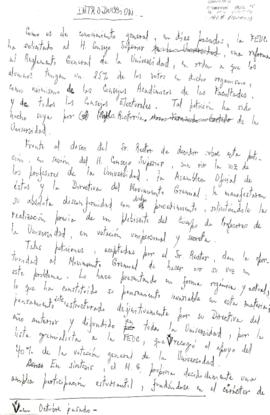 INTRODUCCION
Como es de conocimiento general, en días pasados, la FEUC
ha solicitado al H. Consejo Superior una reforma
al Reglamento General de la Universidad, en orden a que los
alumnos tengan un 25% de los votos en dicho organismo,
como asimismo de los Consejos Académicos de las Facultades
y de todos los Consejos Electorales. Tal petición ha sido
hecha suya por Rectoría
Universidad.
Frente al deseo del Sr. Rector de decidir sobre esta peti-
ción, en sesión del H. Consejo Superior, sin oír la voz de
los profesores de la Universidad, la Asamblea Oficial de
éstos y la Directiva del Movimiento Gremial, le manifestaron
su absoluta disconformidad con procedimiento, solicitándole la
realización previa de un plebiscito del Cuerpo de Profesores de
la Universidad, en votación unipersonal y secreta.
Tales peticiones, aceptadas por el Sr. Rector, dan la opor-
tunidad al Movimiento Gremial de hacer oír su voz en
este problema. Lo hace presentando en forma orgánica y actual,
lo que ha constituido su pensamiento invariable en esta materia,
pensamiento estructurado definitivamente por su Directiva del
año anterior y defendido toda la Universidad, por la
lista gremialista a la FEUC, que recogió el apoyo del
40% de la votación general de la Universidad.
En síntesis, el M.G. propicia decididamente una
amplia participación estudiantil, fundándose en el carácter de
Octubre pasado.-